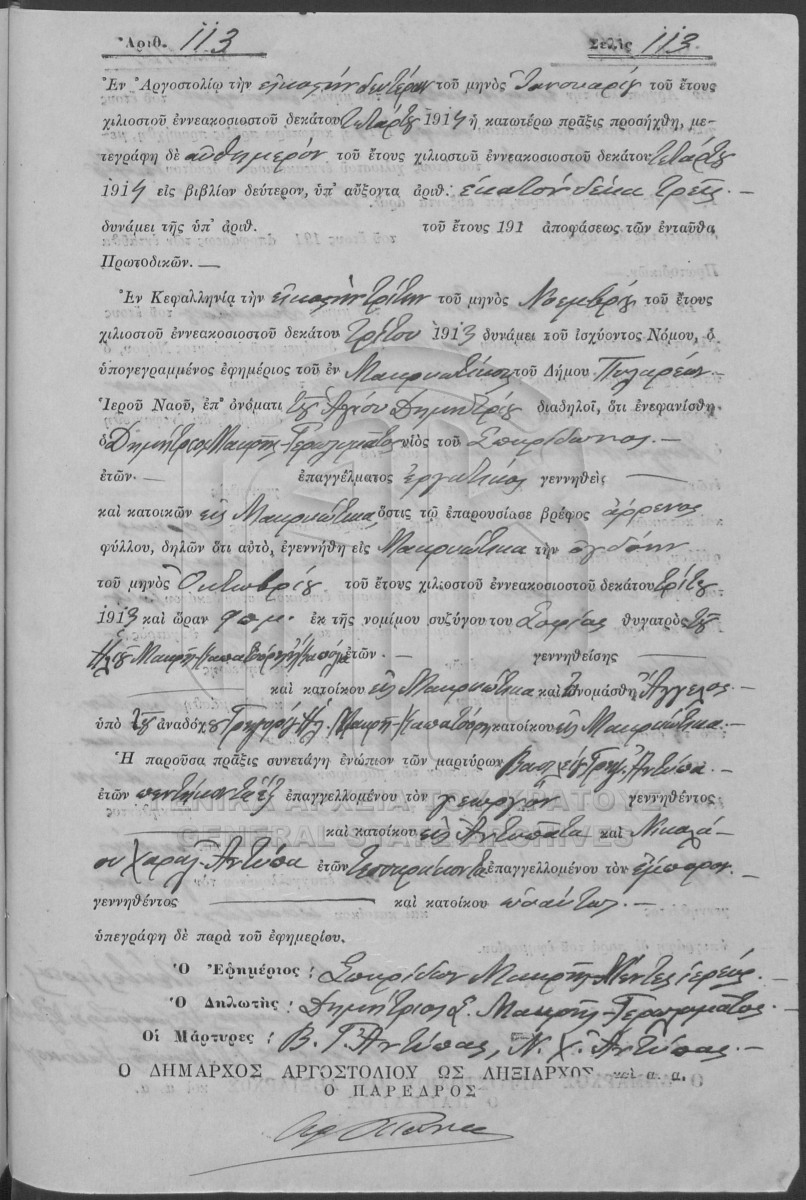 Ἀριθ. 113 Σελὶς 113
Ἐν Ἀργοστολίῳ τὴν εἰκοστὴν δευτέραν τοῦ μηνὸς Ἰανουαρίου τοῦ ἔτους
χιλιοστοῦ ἐννεακοσιοστοῦ δεκάτου τετάρτου 1914 ἡ κατωτέρω πρᾶξις προσήχθη, με-
τεγράφη δὲ αὐθημερὸν τοῦ ἔτους χιλιοστοῦ ἐννεακοσιοστοῦ δεκάτου τετάρτου
1914 εἰς βιβλίον δεύτερον, ὑπ' αὔξοντα ἀριθ. ἑκατὸν δέκα τρεῖς.—
δυνάμει τῆς ὑπ' ἀριθ. τοῦ ἔτους 191 ἀποφάσεως τῶν ἐνταῦθα
Πρωτοδικῶν.—
Ἐν Κεφαλληνίᾳ τὴν εἰκοστὴν τρίτην τοῦ μηνὸς Νοεμβρίου τοῦ ἔτους
χιλιοστοῦ ἐννεακοσιοστοῦ δεκάτου τρίτου 1913 δυνάμει τοῦ ἰσχύοντος Νόμου, ὁ
ὑπογεγραμμένος ἐφημέριος τοῦ ἐν Μακρυωτίκοις τοῦ Δήμου Πυλαρέων
Ἱεροῦ Ναοῦ, ἐπ' ὀνόματι τοῦ Ἁγίου Δημητρίου διαδηλοῖ, ὅτι ἐνεφανίσθη
ὁ Δημήτριος Μακρῆς-Γερολυμᾶτος υἱὸς τοῦ Σπυρίδωνος.—
ἐτῶν.— ἐπαγγέλματος ἐργατικὸς γεννηθεὶς —
καὶ κατοικῶν εἰς Μακρυώτικα, ὅστις τῷ ἐπαρουσίασε βρέφος ἄρρενος
φύλλου, δηλῶν ὅτι αὐτὸ, ἐγεννήθη εἰς Μακρυώτικα τὴν ὀγδόην
τοῦ μηνὸς Ὀκτωβρίου τοῦ ἔτους χιλιοστοῦ ἐννεακοσιοστοῦ δεκάτου τρίτου
1913 καὶ ὥραν π.μ. ἐκ τῆς νομίμου συζύγου του Σοφίας θυγατρὸς τοῦ
Ἠλιοῦ Μακρῆ ἐτῶν.— γεννηθείσης —
— καὶ κατοίκου εἰς Μακρυώτικα καὶ ὠνομάσθη Ἄγγελος.—
ὑπὸ τοῦ ἀναδόχου Γρηγορίου Ἠλ. Μακρῆ κατοίκου εἰς Μακρυώτικα.—
Ἡ παροῦσα πρᾶξις συνετάγη ἐνώπιον τῶν μαρτύρων Βασιλείου Γρηγ. Ἀντύπα.—
ἐτῶν πεντήκοντα ἓξ ἐπαγγελλομένου τὸν γεωργὸν γεννηθέντος
— καὶ κατοίκου εἰς Ἀντυπᾶτα καὶ Νικολά-
ου Χαραλ. Ἀντύπα ἐτῶν τεσσαράκοντα ἐπαγγελλομένου τὸν ἔμπορον.
γεννηθέντος — καὶ κατοίκου ὡσαύτως.—
ὑπεγράφη δὲ παρὰ τοῦ ἐφημερίου.
Ὁ Ἐφημέριος: Σπυρίδων Μακρῆς ἱερεύς.—
Ὁ Δηλωτὴς: Δημήτριος Σ. Μακρῆς-Γερολυμᾶτος.—
Οἱ Μάρτυρες: Β. Γ. Ἀντύπας, Ν. Χ. Ἀντύπας.—
Ὁ ΔΗΜΑΡΧΟΣ ΑΡΓΟΣΤΟΛΙΟΥ ΩΣ ΛΗΞΙΑΡΧΟΣ καὶ α. α.
Ὁ ΠΑΡΕΔΡΟΣ
ΓΕΝΙΚΑ ΑΡΧΕΙΑ ΤΟΥ ΚΡΑΤΟΥΣ
GENERAL STATE ARCHIVES